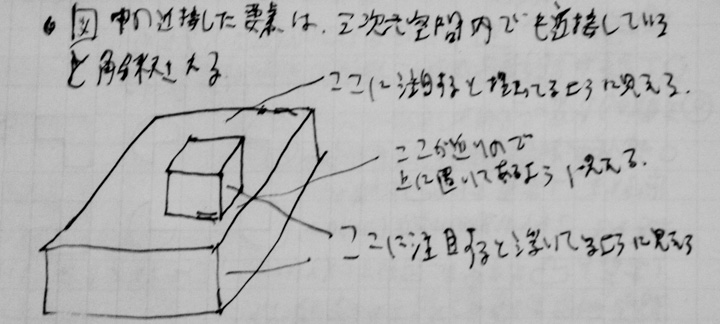 図中の近接した要素は、三次元空間内でも近接している
と解釈される
ここに注目すると埋まってるように見える.
ここが近いので
上に置いてあるように見える.
ここに注目すると浮いてるように見える